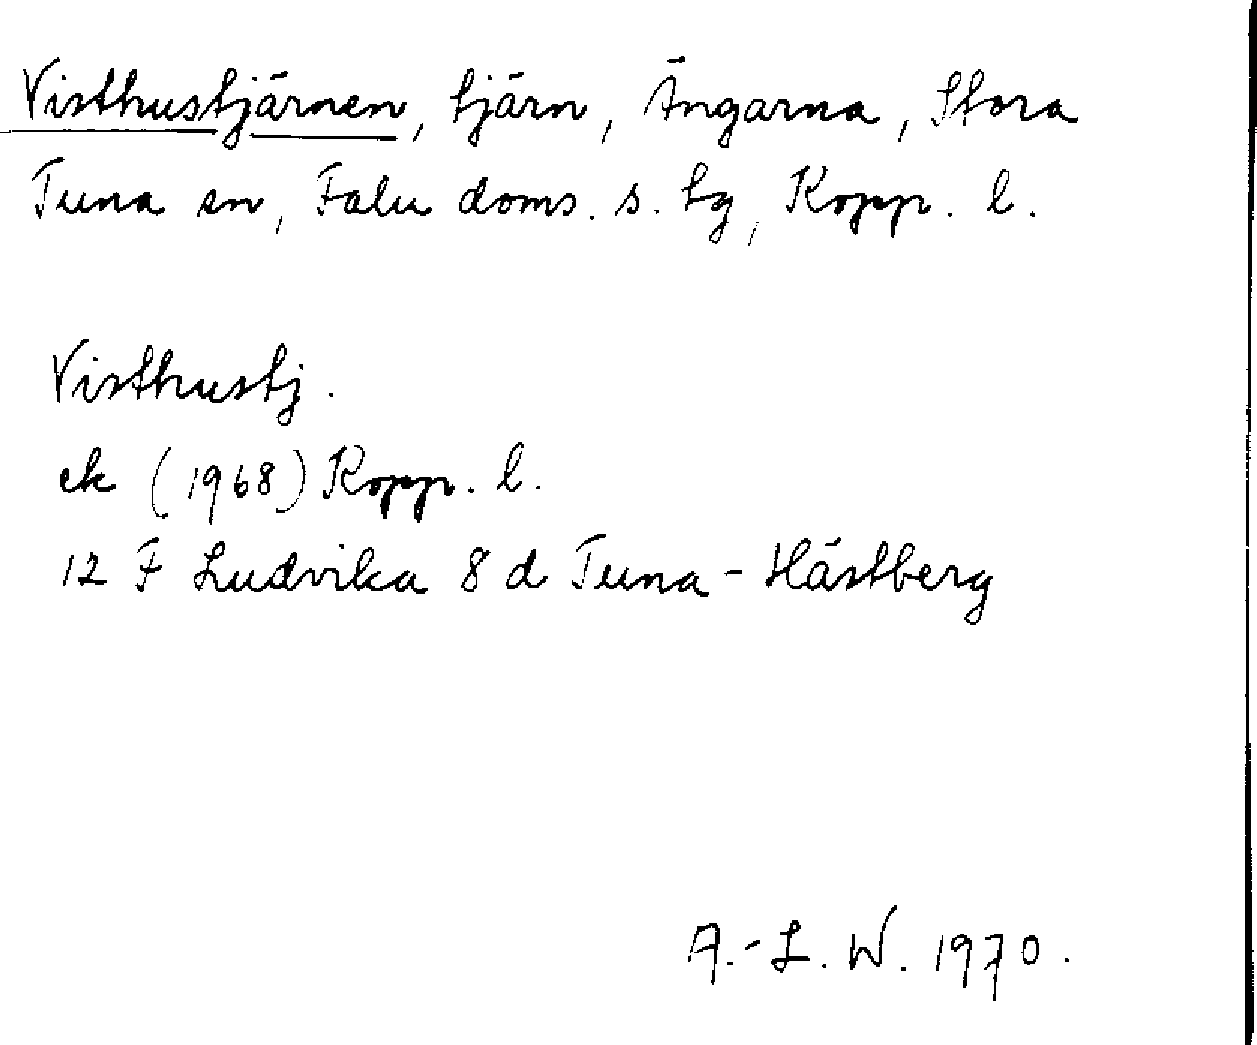 Visthustjärnen, tjärn, Ängarna, Stora
Tuna sn, Falu doms. s. tg, Kopp. l.
Visthustj.
ek (1968) Kopp. l.
12 F Ludvika 8 d Tuna-Hästberg
A.-L. W. 1970.